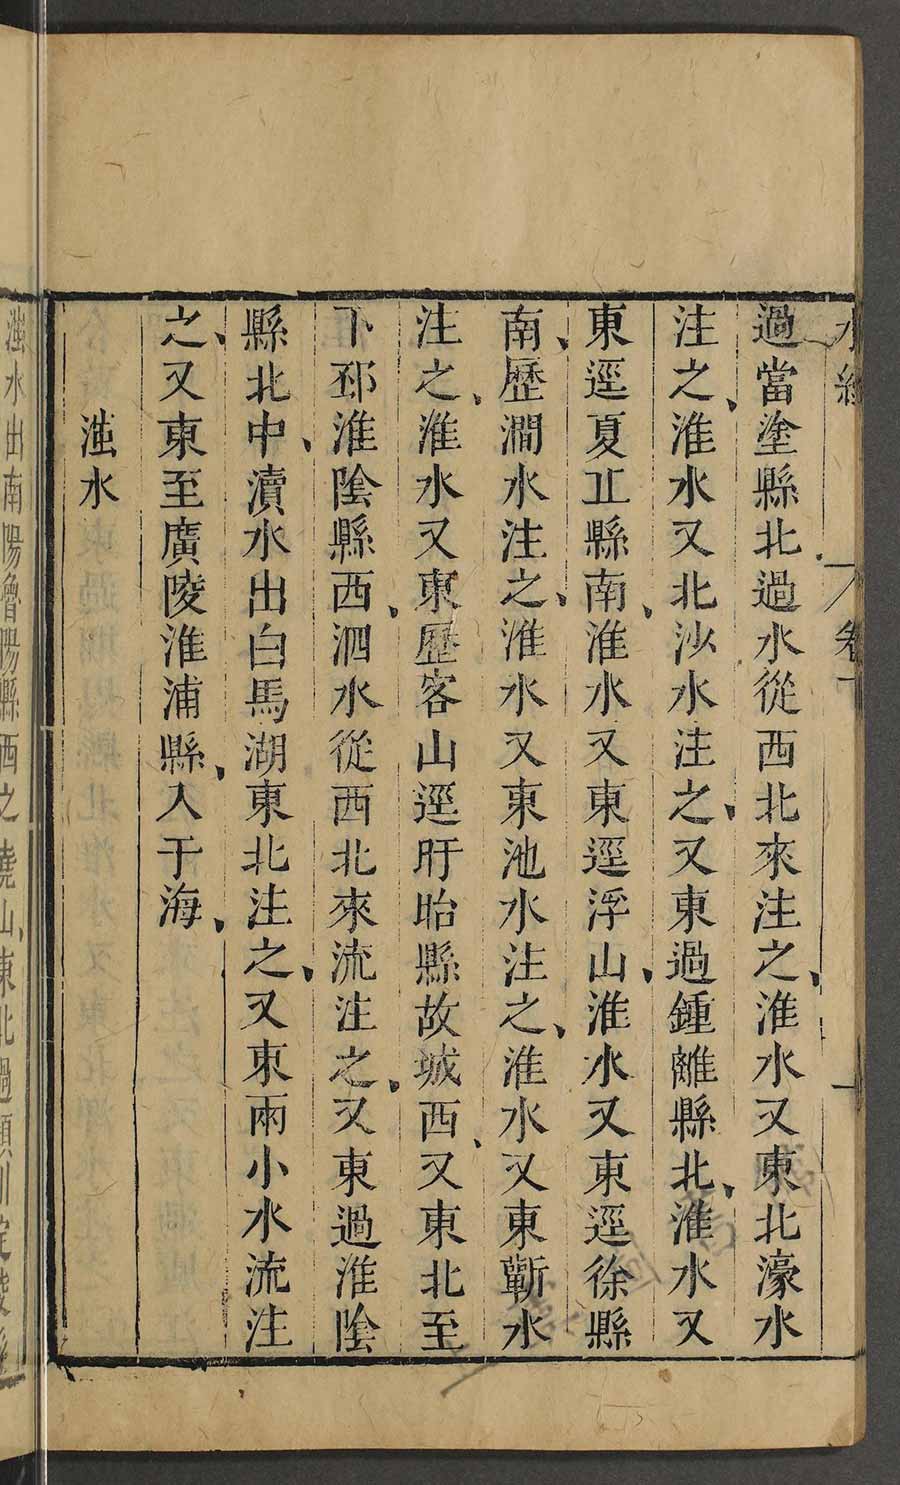 水經
卷
過當塗縣北過水從西北來注之、淮水又東北濠水
注之、淮水又北沙水注之、又東過鍾離縣北、淮水又
東逕夏丘縣南、淮水又東逕浮山、淮水又東逕徐縣
南、歷澗水注之、淮水又東池水注之、淮水又東蘄水
注之、淮水又東歷客山逕盱眙縣故城西、又東北至
下邳淮陰縣西、泗水從西北來流注之、又東過淮陰
縣北中、瀆水出白馬湖東北注之、又東兩小水流注
之、又東至廣陵淮浦縣、入于海、
滍水
滍水出南陽魯陽縣西之堯山、東北過潁川定陵